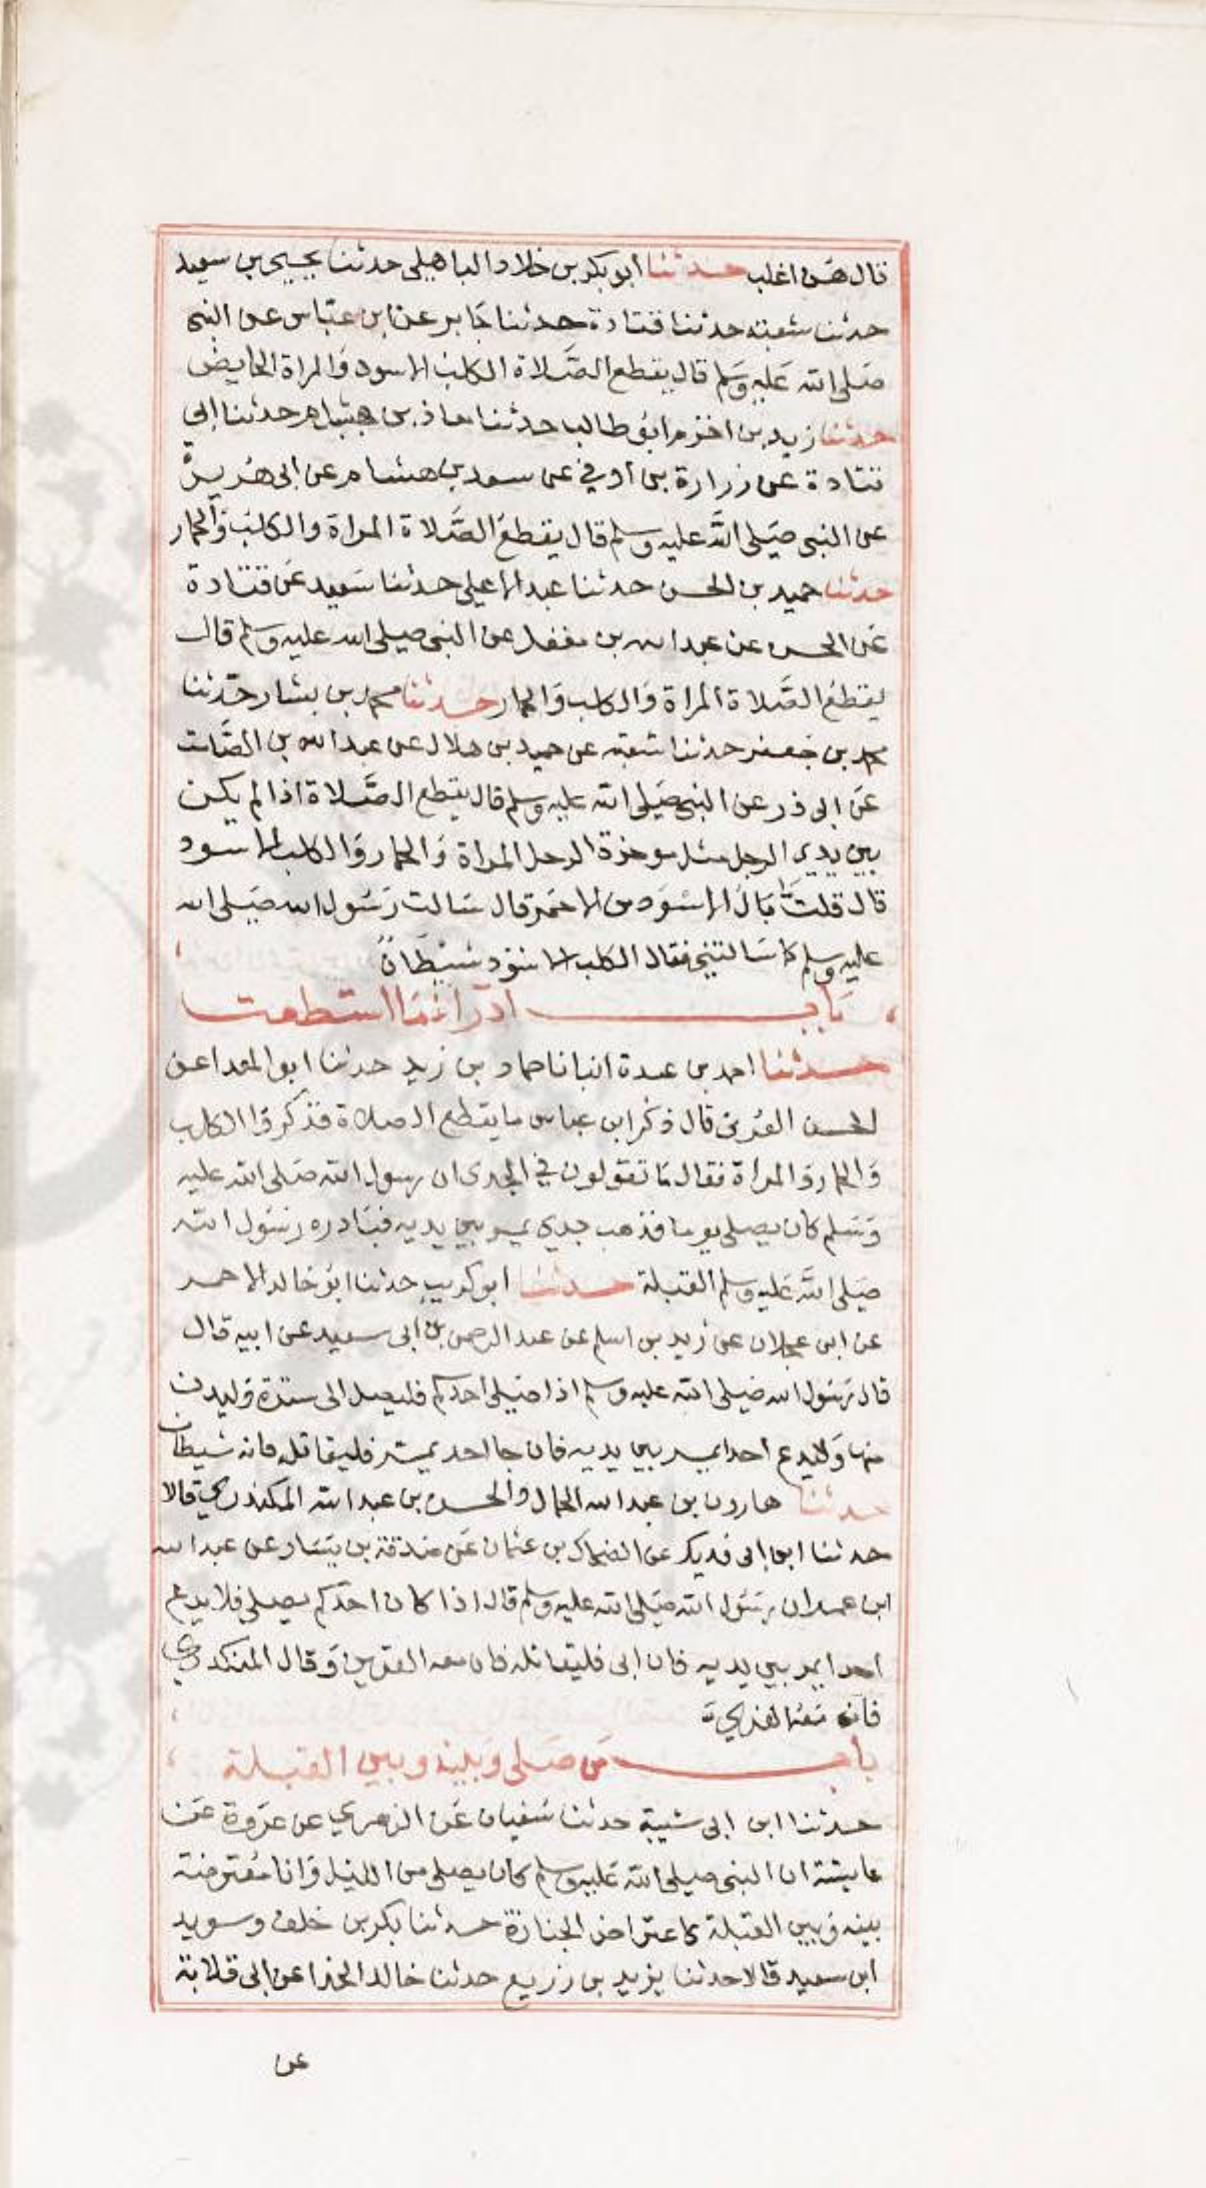 قال هن اغلب حدثنا ابو بكر بن خلاد الباهلي حدثنا يحيى بن سعيد
حدثنا شعبه حدثنا قتادة حدثنا جابر عن ابن عباس عن النبي
صلى الله عليه وسلم قال يقطع الصلاة الكلب الاسود والمراة الحايض
حدثنا زيد بن اخزم ابو طالب حدثنا معاذ بن هشام حدثنا ابي
قتادة عن زرارة بن اوفي عن سعد بن هشام عن ابي هريرة
عن النبي صلى الله عليه وسلم قال يقطع الصلاة المراة والكلب والحمار
حدثنا حميد بن الحسن حدثنا عبد الاعلى حدثنا سعيد عن قتادة
عن الحسن عن عبد الله بن مغفل عن النبي صلى الله عليه وسلم قال
يقطع الصلاة المراة والكلب والحمار حدثنا محمد بن بشار حدثنا
محمد بن جعفر حدثنا شعبه عن حميد بن هلال عن عبد الله بن الصامت
عن ابي ذر عن النبي صلى الله عليه وسلم قال يقطع الصلاة اذا لم يكن
بين يدي الرجل مثل موخرة الرحل المراة والحمار والكلب الاسود
قال قلت ما بال الاسود من الاحمر قال سالت رسول الله صلى الله
عليه وسلم كما سالتني فقال الكلب الاسود شيطان
باب ادرا ما استطعت
حدثنا احمد بن عبدة انبانا حماد بن زيد حدثنا ابو المعدا عن
الحسن العرني قال ذكر ابن عباس ما يقطع الصلاة فذكروا الكلب
والحمار والمراة فقال ما تقولون في الجدي ان رسول الله صلى الله عليه
وسلم كان يصلي يوما فذهب جدي يمر بين يديه فبادره رسول الله
صلى الله عليه وسلم القبلة حدثنا ابو كريب حدثنا ابو خالد الاحمر
عن ابن عجلان عن زيد بن اسلم عن عبد الرحمن بن ابي سعيد عن ابيه قال
قال رسول الله صلى الله عليه وسلم اذا صلى احدكم فليصل الى سترة وليدن
منها ولا يدع احدا يمر بين يديه فان جا احد يمر فليقاتله فانه شيطان
حدثنا هارون بن عبد الله الحمال والحسن بن عبد الله المكندري قالا
حدثنا ابن ابي فديك عن الضحاك بن عثمان عن صدقة بن يسار عن عبد الله
ابن عمر ان رسول الله صلى الله عليه وسلم قال اذا كان احدكم يصلي فلا يدع
احدا يمر بين يديه فان ابى فليقاتله فان معه القرين وقال المنكدري
فان معه العزي
باب من صلى وبينه وبين القبلة
حدثنا ابن ابي شيبة حدثنا سفيان عن الزهري عن عروة عن
عايشة ان النبي صلى الله عليه وسلم كان يصلي من الليل وانا معترضة
بينه وبين القبلة كاعتراض الجنازة حدثنا بكر بن خلف وسويد
ابن سعيد قالا حدثنا يزيد بن زريع حدثنا خالد الحذا عن ابي قلابة
عن